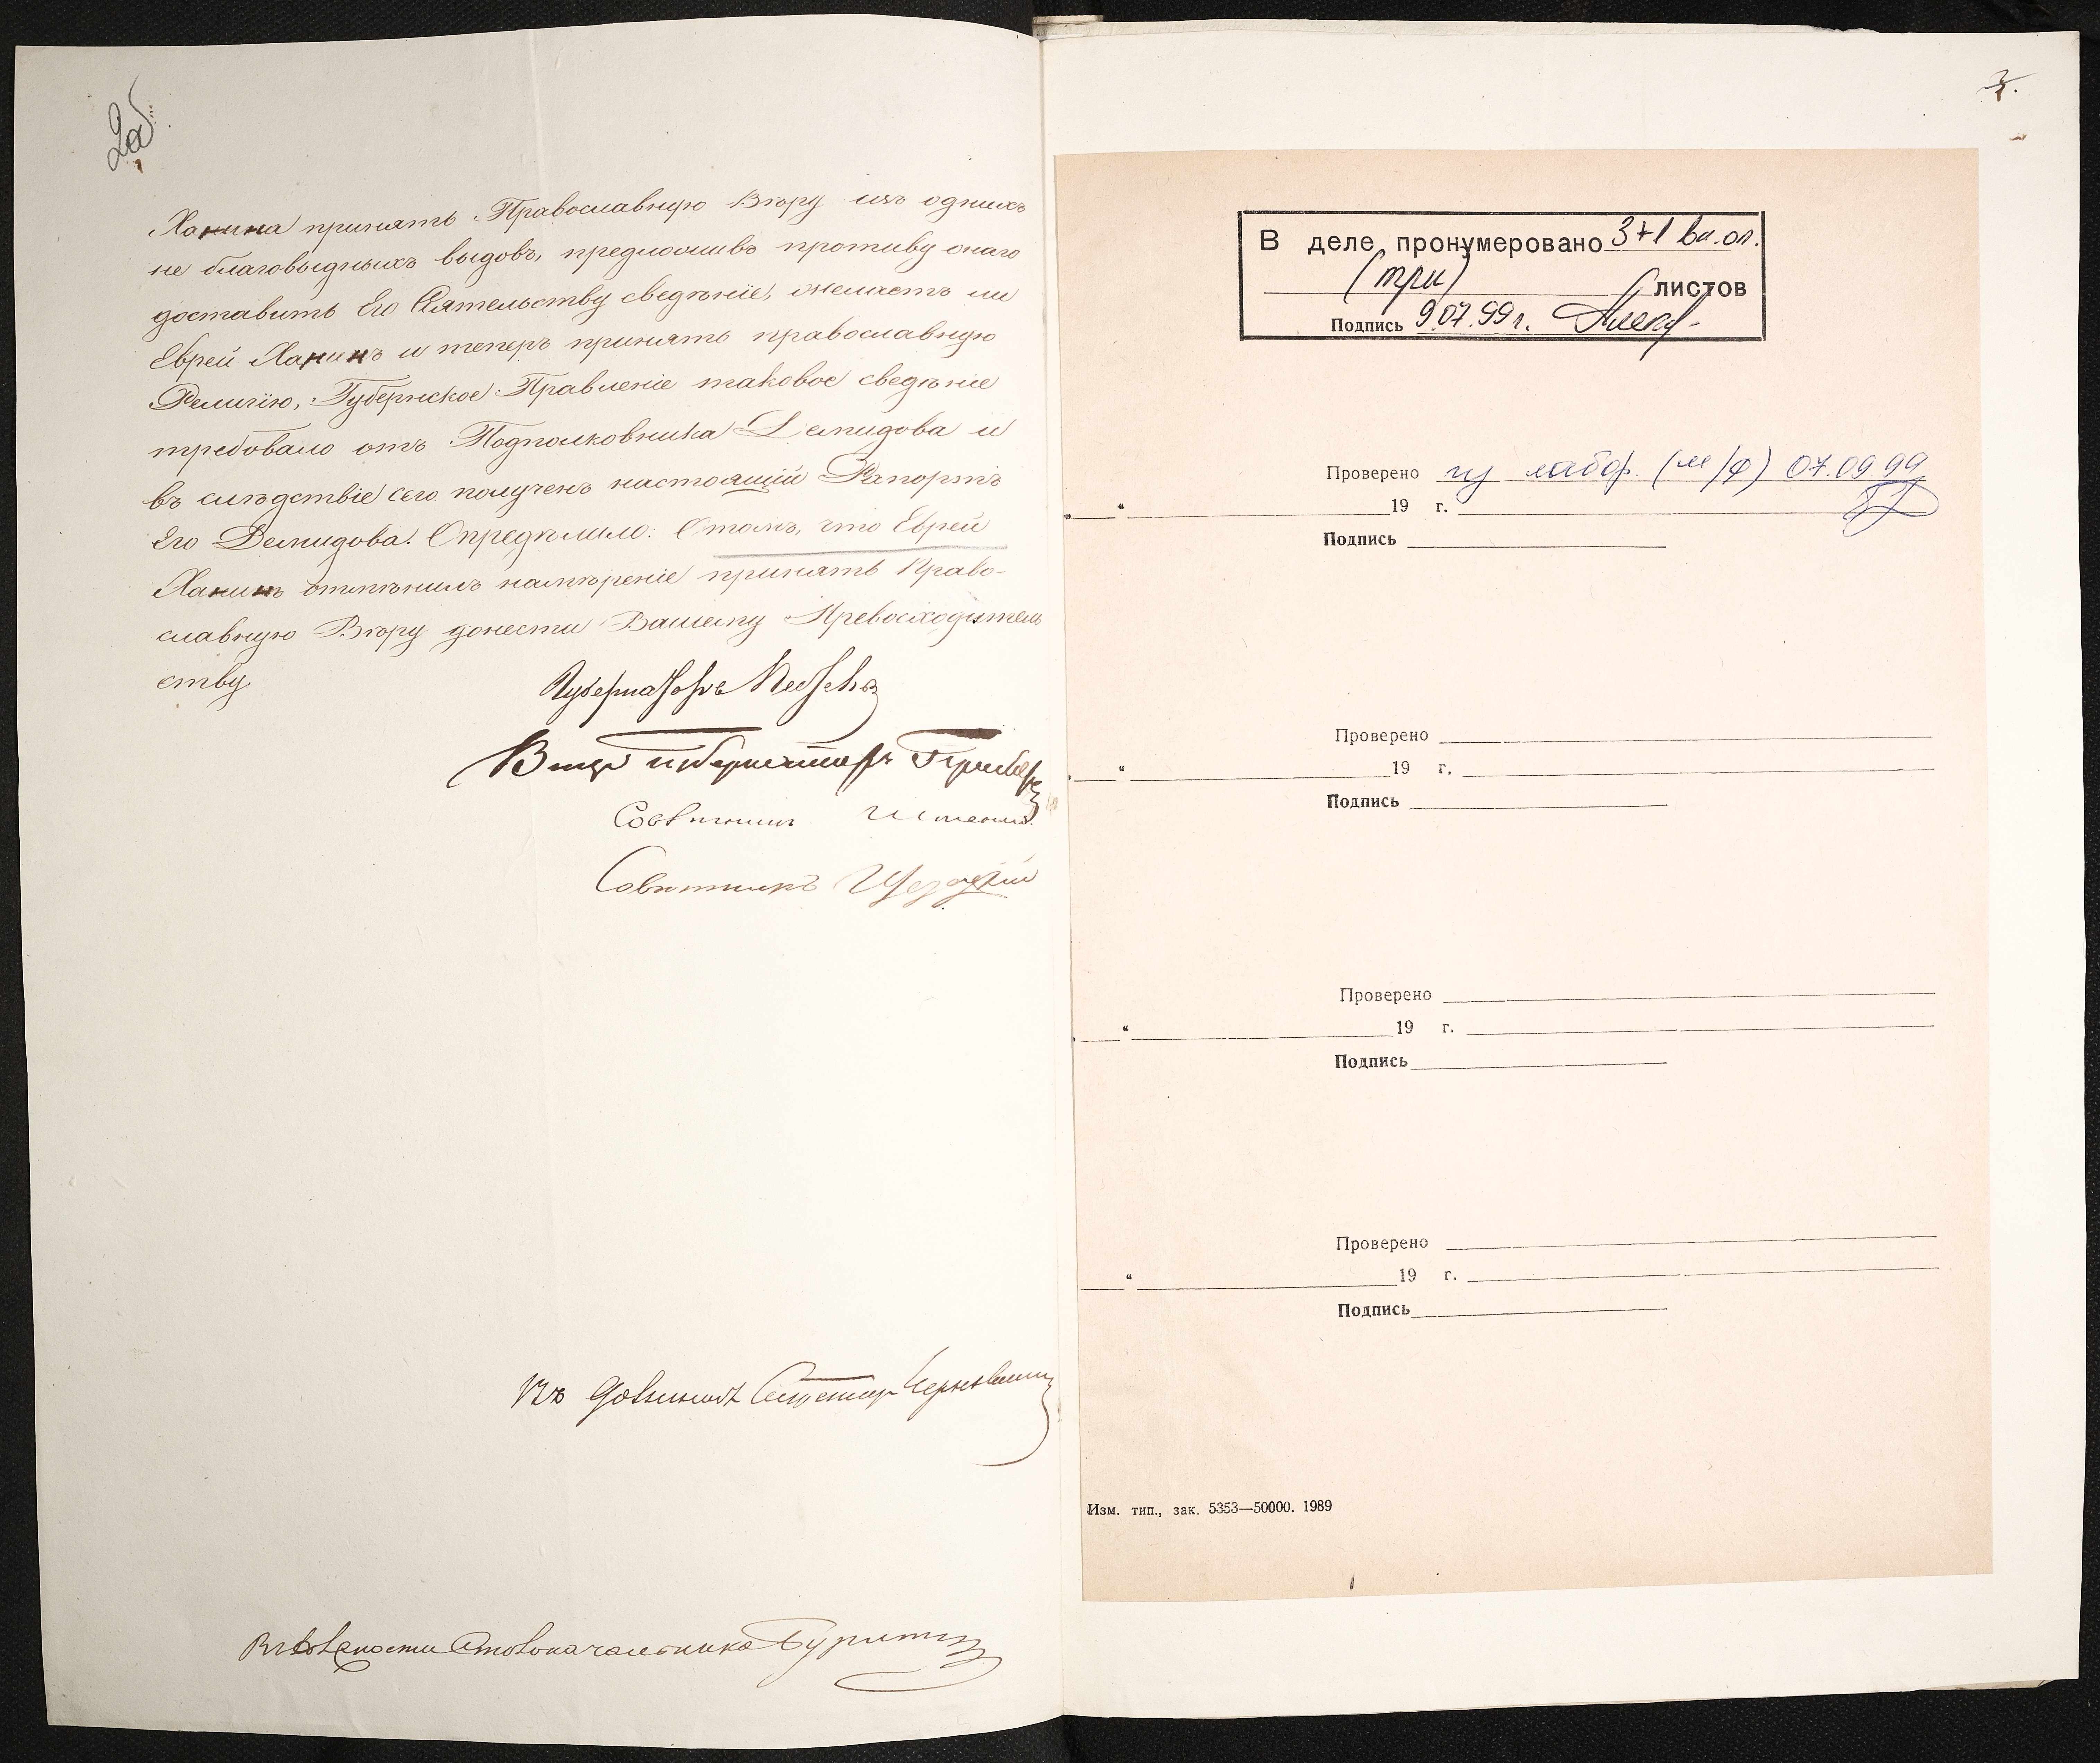 2об.
Ханина принять Православную Вѣру изъ однихъ
не благовидныхъ видовъ, предложивъ противу онаго
доставить Его Сіятельству сведѣніе, желаетъ ли
Еврей Ханинъ и теперъ принять православную
Религію, Губернское Правленіе таковое сведѣніе
требовало отъ Подполковника Демидова и
въ слѣдствіе сего полученъ настоящій Рапортъ
Его Демидова. Опредѣлило: О томъ, что Еврей
Ханинъ отмѣнилъ намѣреніе принять Право-
славную Вѣру донести Вашему Превосходитель
ству
Губернаторъ
Вице Губернаторъ
Совѣтникъ
Совѣтникъ
Въ должности Секретаря
Въ должности Столоначальника
3.
В деле пронумеровано 3+1 вн.оп.
(три) листов
Подпись 9.07.99 г.
Проверено лабор. (м/ф) 07.09 99
„ “ 19 г.
Подпись
Проверено
„ “ 19 г.
Подпись
Проверено
„ “ 19 г.
Подпись
Проверено
“ 19 г.
Подпись
Изм. тип., зак. 5353—50000. 1989